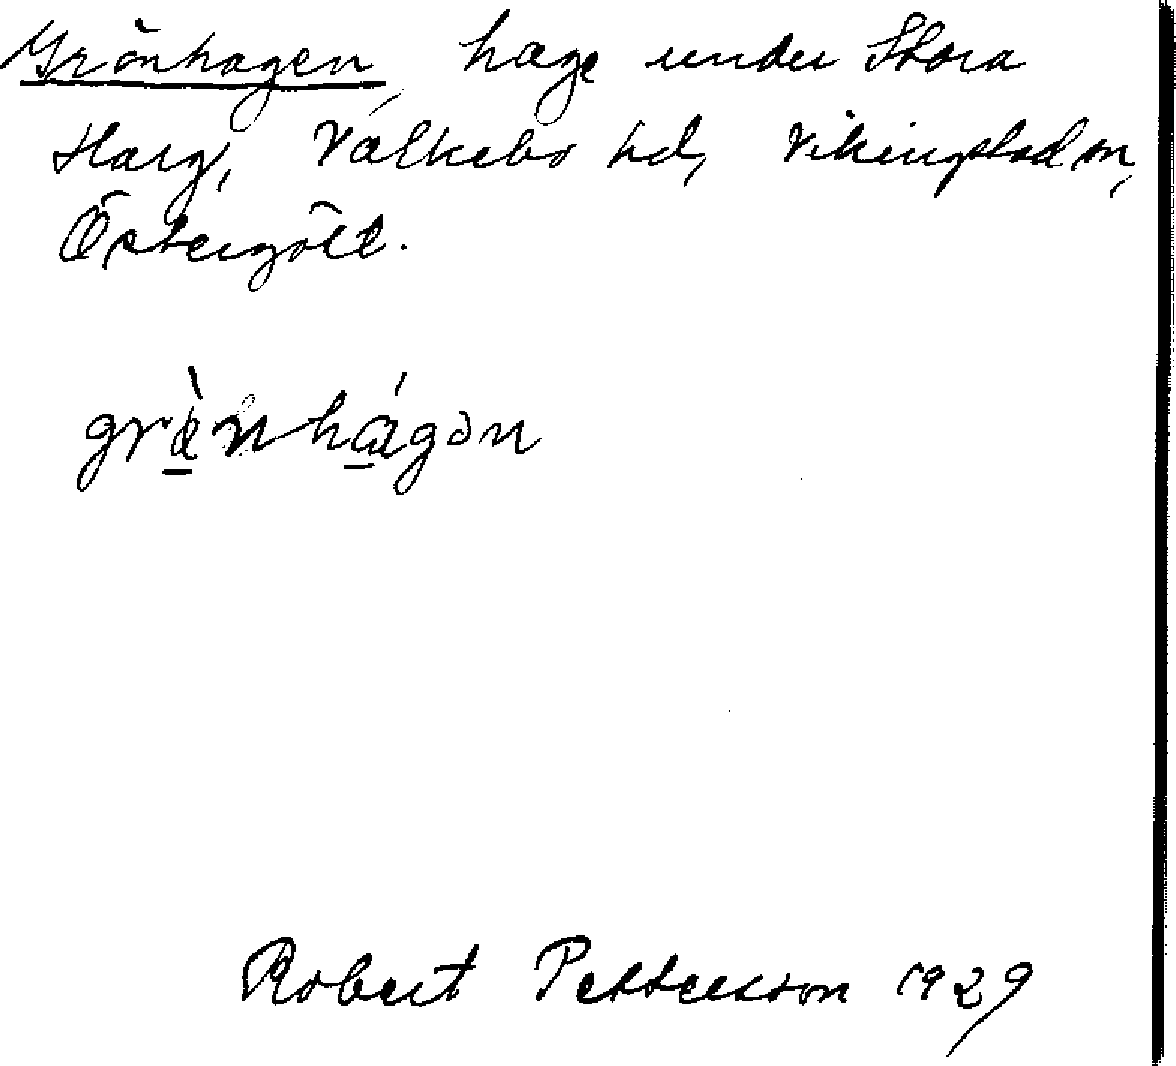 Grönhagen, hage under Stora
Harg, Valkebo hd, Vikingstad sn,
Östergötl.
grǜnhágən
Robert Pettersson 1929